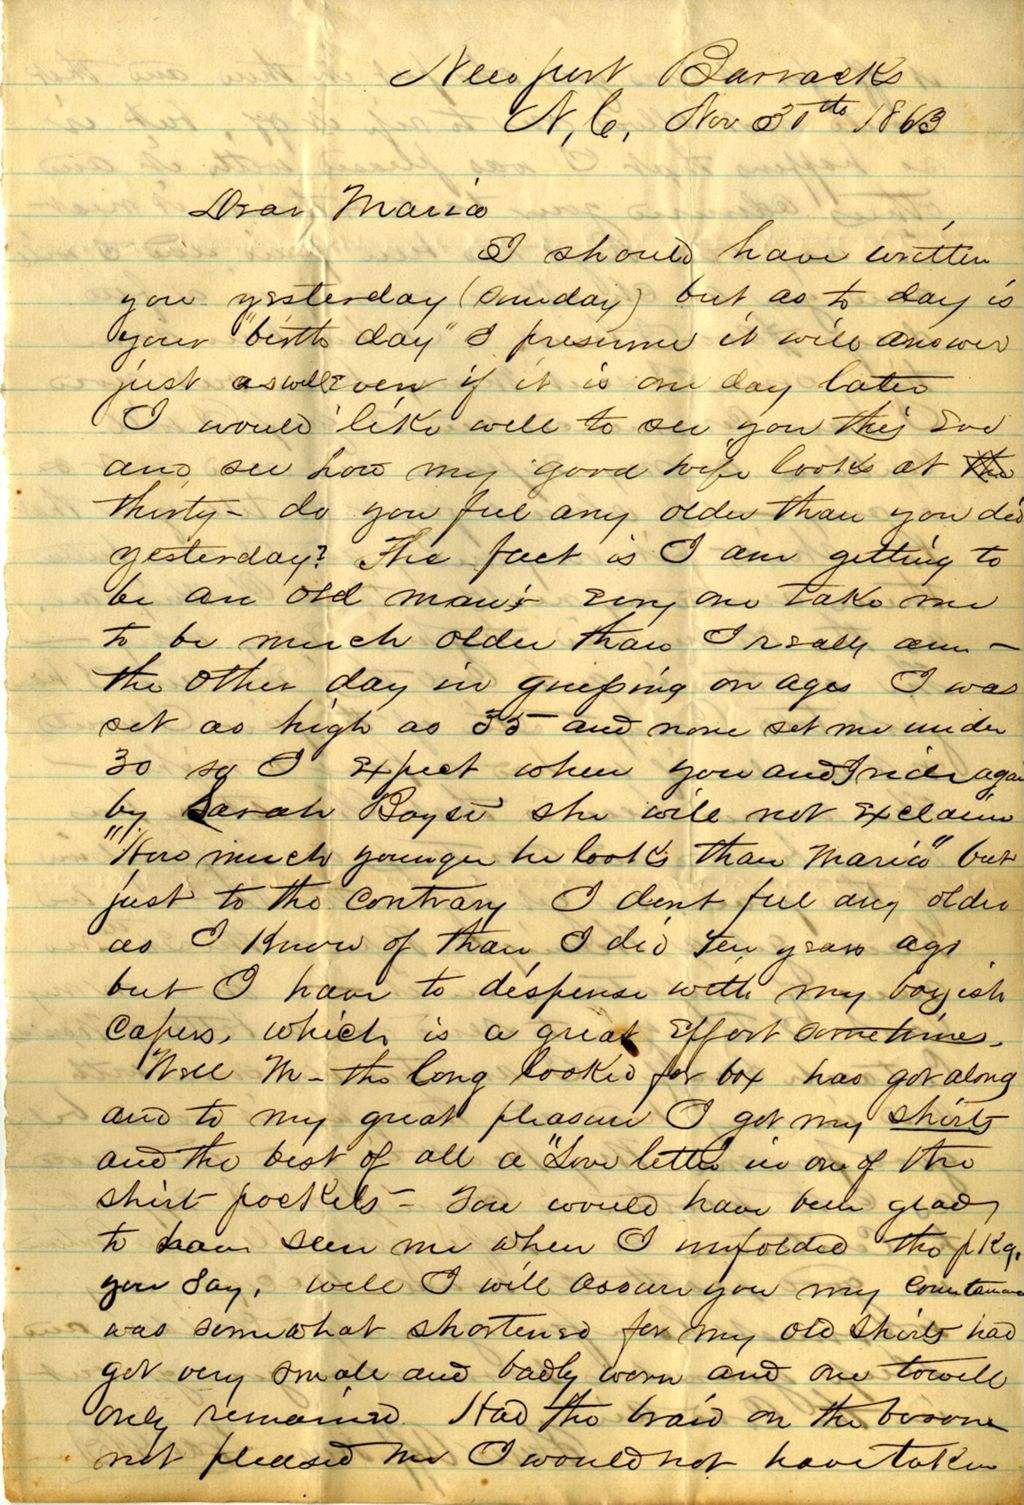 Newport Barracks
N, C, Nov 30th 1863
Dear Maria
I should have written
you yesterday (Sunday) but as to day is
your "birth day" I presume it will answer
just as well even if it is one day later
I would like well to see you this Eve
and see how my good wife looks at the
thirty - do you feel any older than you did
yesterday? The fact is I am getting to
be an old man & Evry one take me
to be much older than I really am -
the other day in guessing on ages I was
set as high as 35 and none set me under
30 so I Expect when you and I ride again
by Sarah she will not Exclaim
"How much younger he looks than Maria" but
just to the contrary I dont feel any older
as I Know of than I did ten years ago
but I have to dispense with my boyish
capers, which is a great Effort sometimes.
Well M - the long looked for box has got along
and to my great pleasure I got my shirts
and the best of all a "Love letter" in one of the
shirt pockets - You would have been glad
to have seen me when I unfolded the pkg.
you say, well I will assure you my countanance
was somewhat shortened for my old shirts had
got very smale and badly worn and one towell
only remained. Had the braid on the bosome
not pleased me I would not have taken